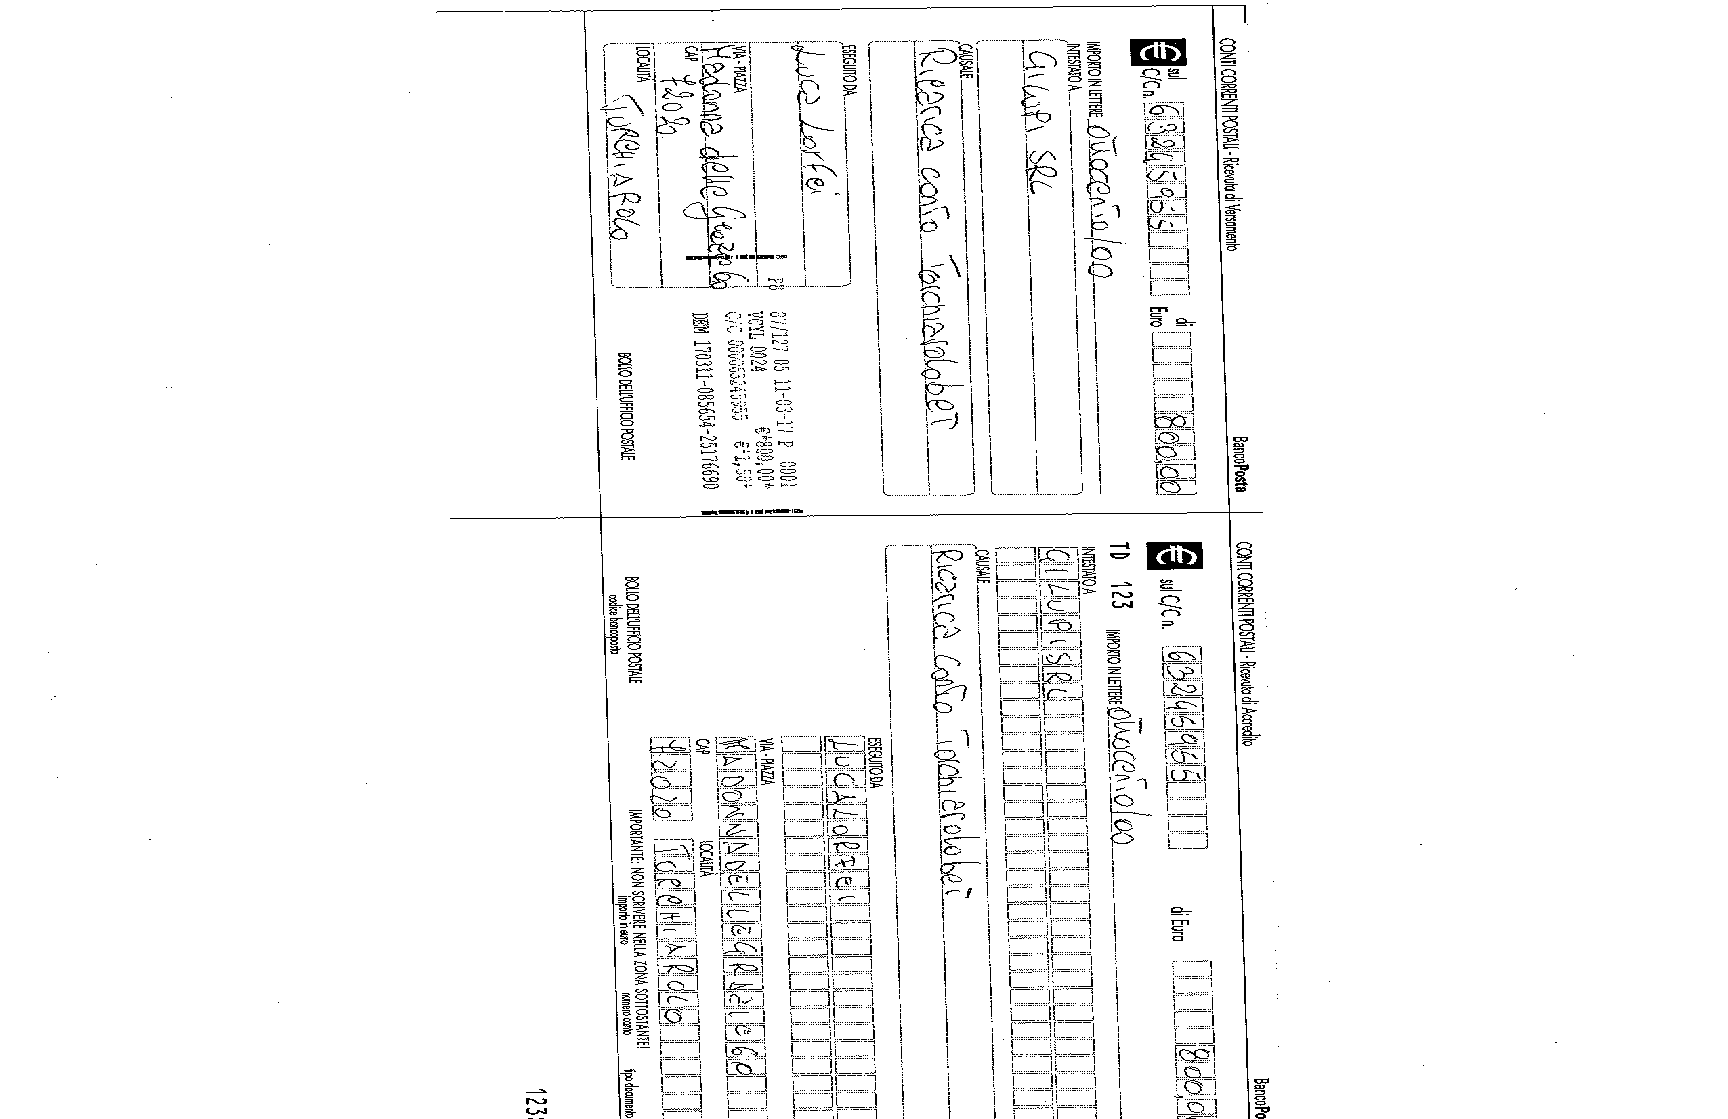 CONTI CORRENTI POSTALI - Ricevuta di Versamento
BancoPosta
€ sul C/C n. 63245955 di Euro 800,00
IMPORTO IN LETTERE ottocento/00
INTESTATO A
GILUPI SRL
CAUSALE
Ricarica conto Torchiarolobet
ESEGUITO DA
Luca Lorfei
VIA - PIAZZA
Madonna delle Grazie 60
CAP
72020
LOCALITÀ
TORCHIAROLO
07/127 05 11-03-17 P 0001
VCYL 0024 €*800,00*
C/C 000063245955 €*1,50*
DEM 170311-085654-25176690
BOLLO DELL'UFFICIO POSTALE
CONTI CORRENTI POSTALI - Ricevuta di Accredito
BancoPo
€ sul C/C n. 63245955 di Euro 800,0
TD 123 IMPORTO IN LETTERE ottocento/00
INTESTATO A
GILUPI SRL
CAUSALE
Ricarica conto Torchiarolobet
ESEGUITO DA
LUCA LORFEI
VIA - PIAZZA
MADONNA DELLE GRAZIE 60
CAP LOCALITÀ
72020 TORCHIAROLO
BOLLO DELL'UFFICIO POSTALE
codice bancoposta
IMPORTANTE: NON SCRIVERE NELLA ZONA SOTTOSTANTE!
importo in euro numero conto tipo documento
123